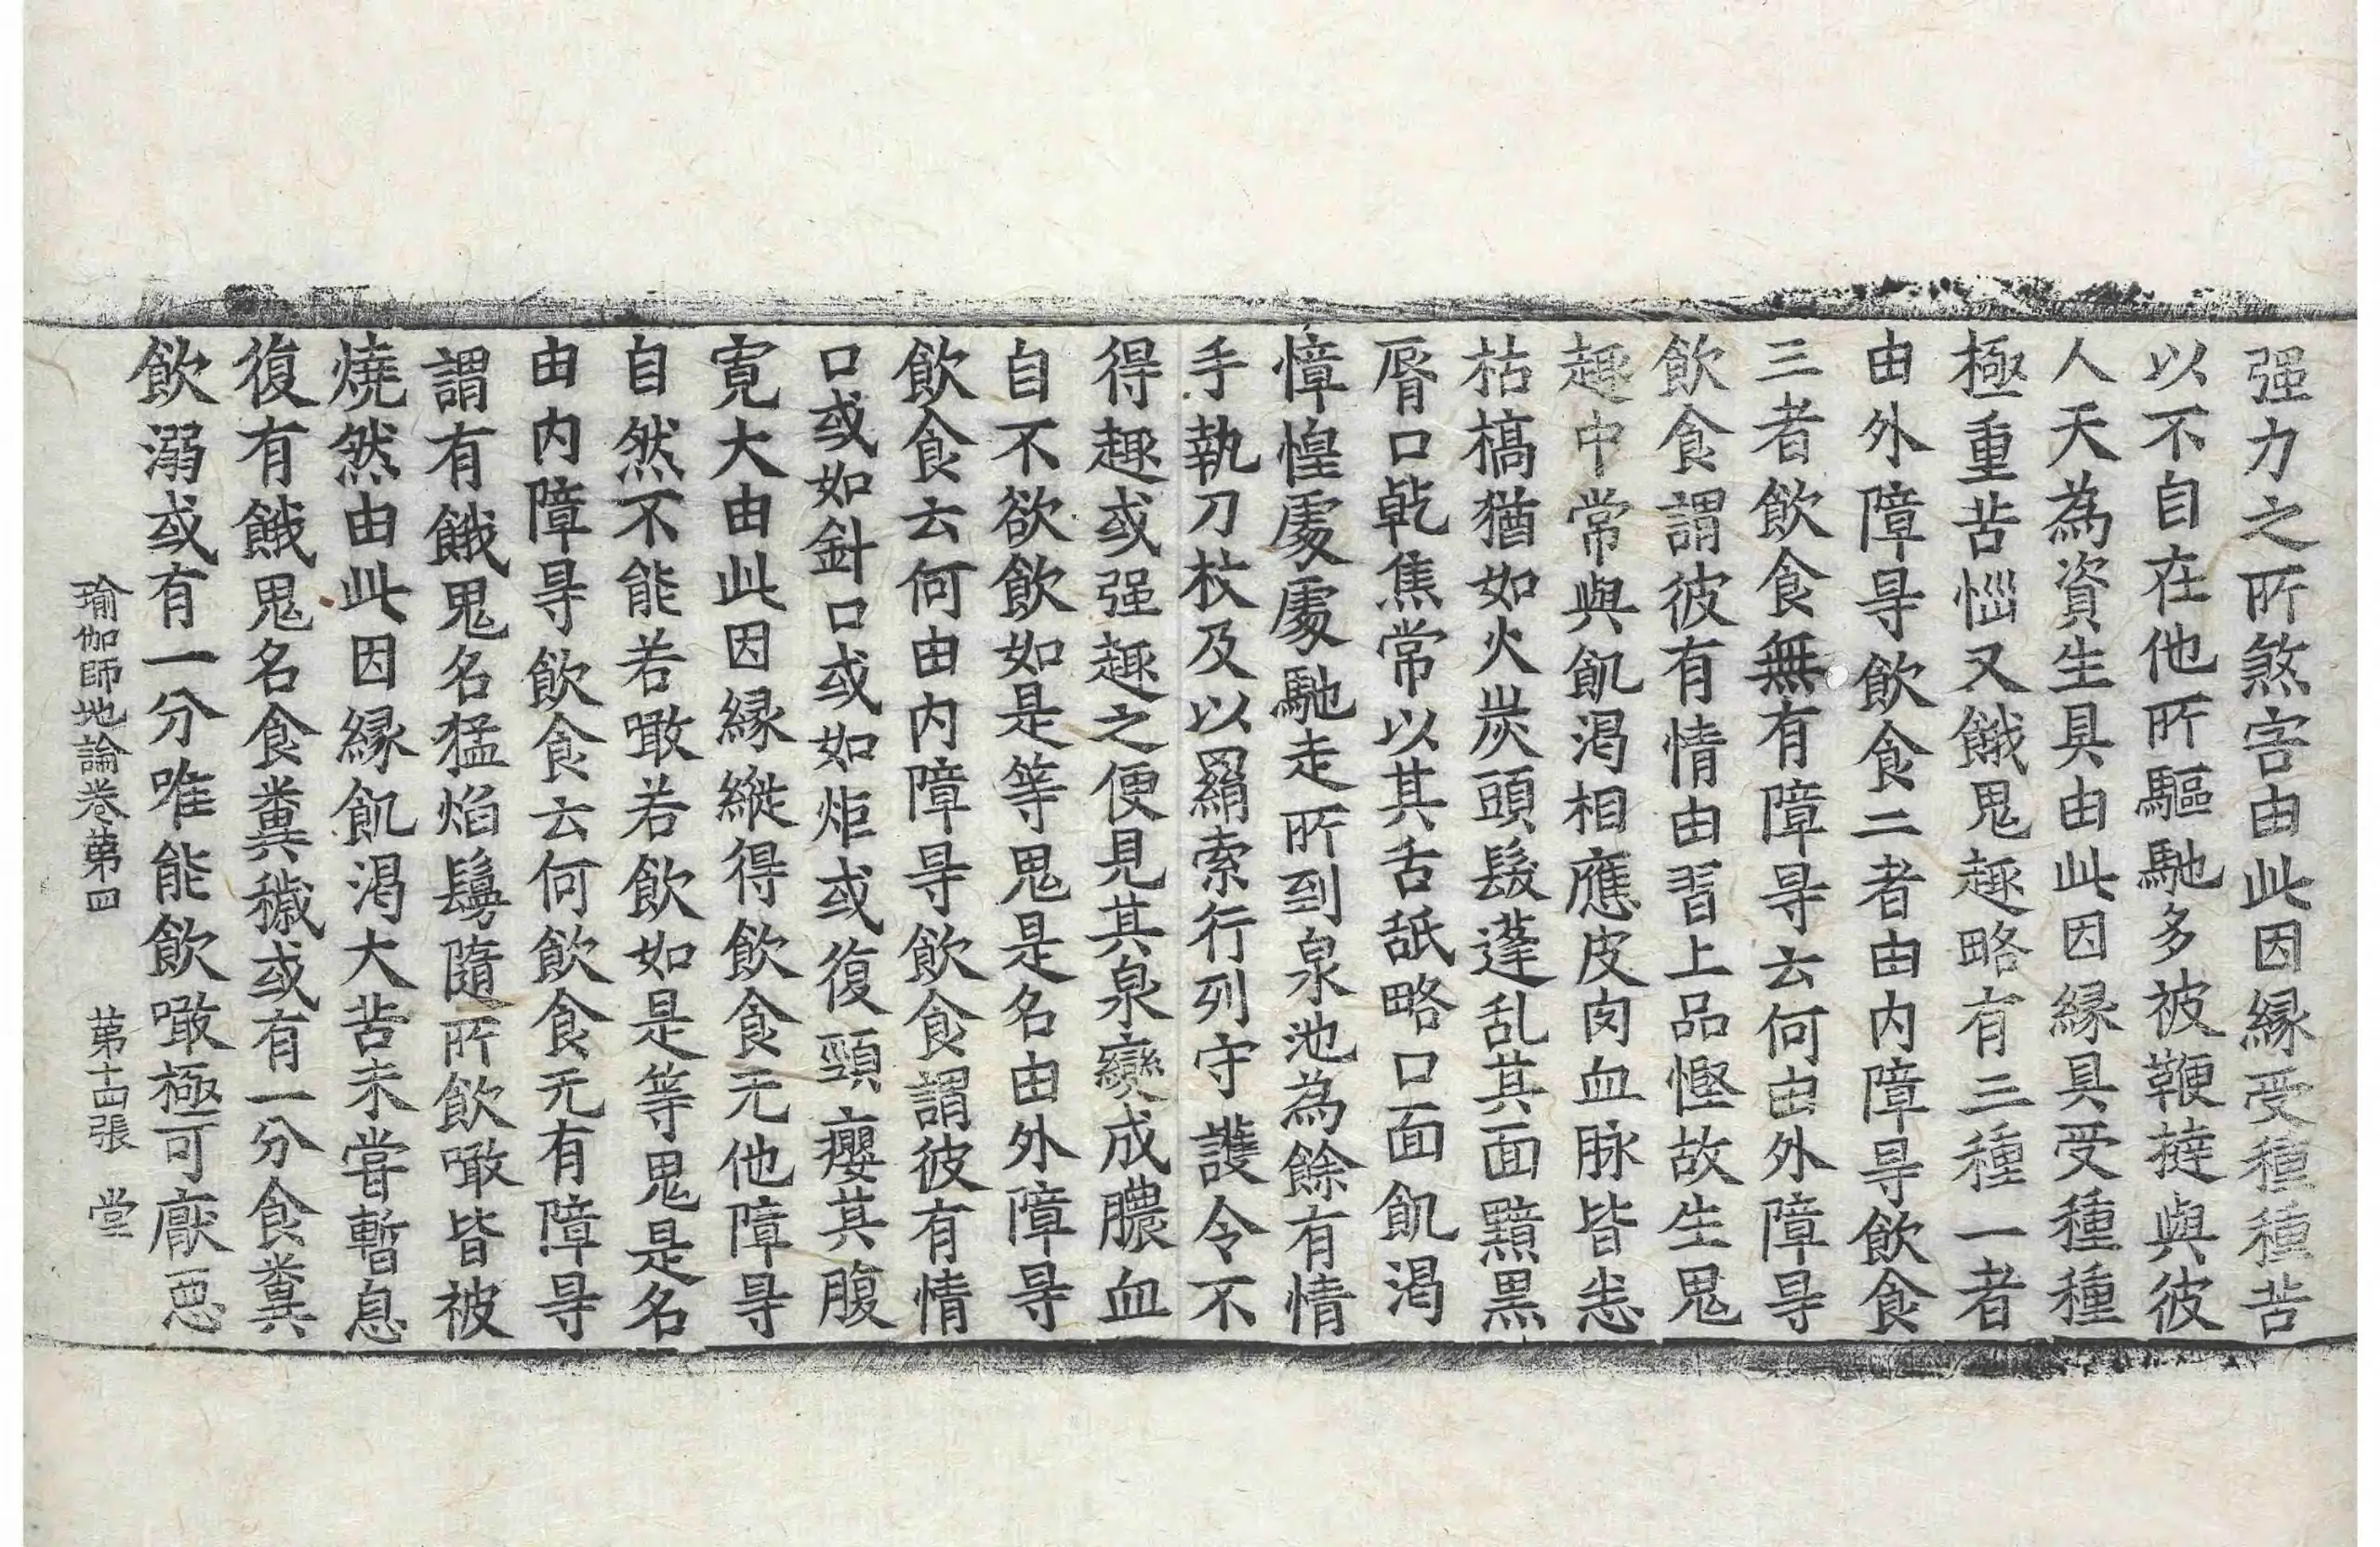 强力之所煞害由此因縁受種種苦
以不自在他所驅馳多被鞭撻與彼
人天為資生具由此因縁具受種種
極重苦惱又餓鬼趣略有三種一者
由外障㝵飲食二者由内障㝵飲食
三者飲食無有障㝵云何由外障㝵
飲食謂彼有情由習上品慳故生鬼
趣中常與飢渴相應皮肉血脉皆悉
枯槁猶如火炭頭髮蓬乱其面黯黒
脣口乾焦常以其舌舐略口面飢渴
慞惶處處馳走所到泉池為餘有情
手執刀杖及以羂索行列守護令不
得趣或强趣之便見其泉變成膿血
自不欲飲如是等鬼是名由外障㝵
飲食云何由内障㝵飲食謂彼有情
口或如針口或如炬或復頸癭其腹
寛大由此因縁縱得飲食无他障㝵
自然不能若噉若飲如是等鬼是名
由内障㝵飲食云何飲食无有障㝵
謂有餓鬼名猛焰鬘隨所飲噉皆被
燒然由此因縁飢渴大苦未嘗暫息
復有餓鬼名食糞穢或有一分食糞
飲溺或有一分唯能飲噉極可厭惡
瑜伽師地論卷第四 第十四張 堂